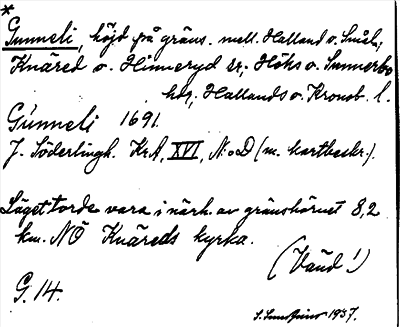 *
Gunneli, höjd på gräns. mell. Halland o. Smål.,
Knäred o. Hinneryd sr, Höks o. Sunnerbo
hdr, Hallands o. Kronob. l.
Gúnneli 1691.
J. Söderlingh. KrA, XVI, N:o D (m. kartbeskr.).
Läget torde vara i närh. av gränshörnet 8,2
km. NÖ Knäreds kyrka.
(Vänd!)
G. 14.
1937.